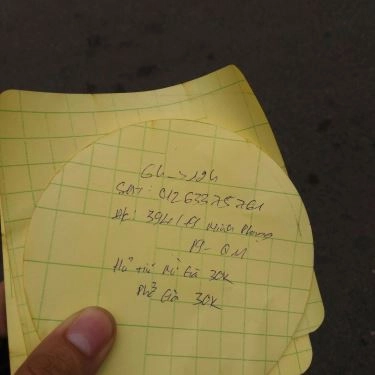 6h → 12h
SĐT: 01263375761
ĐC: 394/ Minh Phụng
P9 - Q11
Hủ Tiếu Mì Gà 30K
Phở Gà 30K